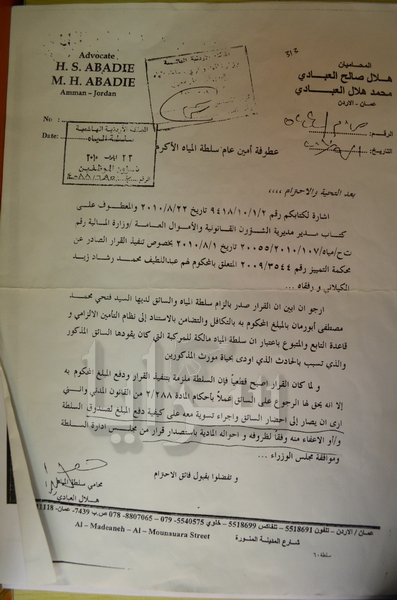 Advocate
H. S. ABADIE
M. H. ABADIE
Amman – Jordan
المحاميان
هلال صالح العبادي
محمد هلال العبادي
عمان - الاردن
No :
Date:
الرقم:
التاريخ:
المملكة الأردنية الهاشمية
سلطة المياه
عطوفة أمين عام سلطة المياه الأكرم
بعد التحية والاحترام ،،،،
اشارة لكتابكم رقم ٩٤١٨/١٠/١/٢ تاريخ ٢٠١٠/٨/٢٢ والمعطوف على
كتاب مدير مديرية الشؤون القانونية والأموال العامة /وزارة المالية رقم
ت ح/مياه/٢٠٠٥٥/٢٠١٠/١٠٧ تاريخ ٢٠١٠/٨/١ بخصوص تنفيذ القرار الصادر عن
محكمة التمييز رقم ٢٠٠٩/٣٥٤٤ المتعلق بالمحكوم لهم عبداللطيف محمد رشاد زيد
الكيلاني و رفقاه .
ارجو ان ابين ان القرار صدر بالزام سلطة المياه والسائق لديها السيد فتحي محمد
مصطفى أبورمان بالمبلغ المحكوم به بالتكافل والتضامن بالاستناد إلى نظام التأمين الالزامي و
قاعدة التابع والمتبوع باعتبار ان سلطة المياه مالكة للمركبة التي كان يقودها السائق المذكور
والذي تسبب بالحادث الذي اودى بحياة مورث المذكورين
و لما كان القرار اصبح قطعياً فإن السلطة ملزمة بتنفيذ القرار ودفع المبلغ المحكوم به
إلا انه يحق لها الرجوع على السائق عملاً بأحكام المادة ٢/٢٨٨ من القانون المدني وانني
ارى ان يصار إلى احضار السائق واجراء تسوية معه على كيفية دفع المبلغ لصندوق السلطة
و/أو الاعفاء منه وفقا لظروفه و احواله المادية باستصدار قرار من مجلس ادارة السلطة
وموافقة مجلس الوزراء ...
و تفضلوا بقبول فائق الاحترام
محامي سلطة المياه
هلال العبادي
عمان / الاردن – تلفون 5518691 – تلفاكس 5518699 – خلوي 5540575-079 8807065-078 ص.ب 7439- عمان- 11118
Al – Madeaneh – Al – Mounauara Street
شارع المدينة المنورة
سلطة٦٠